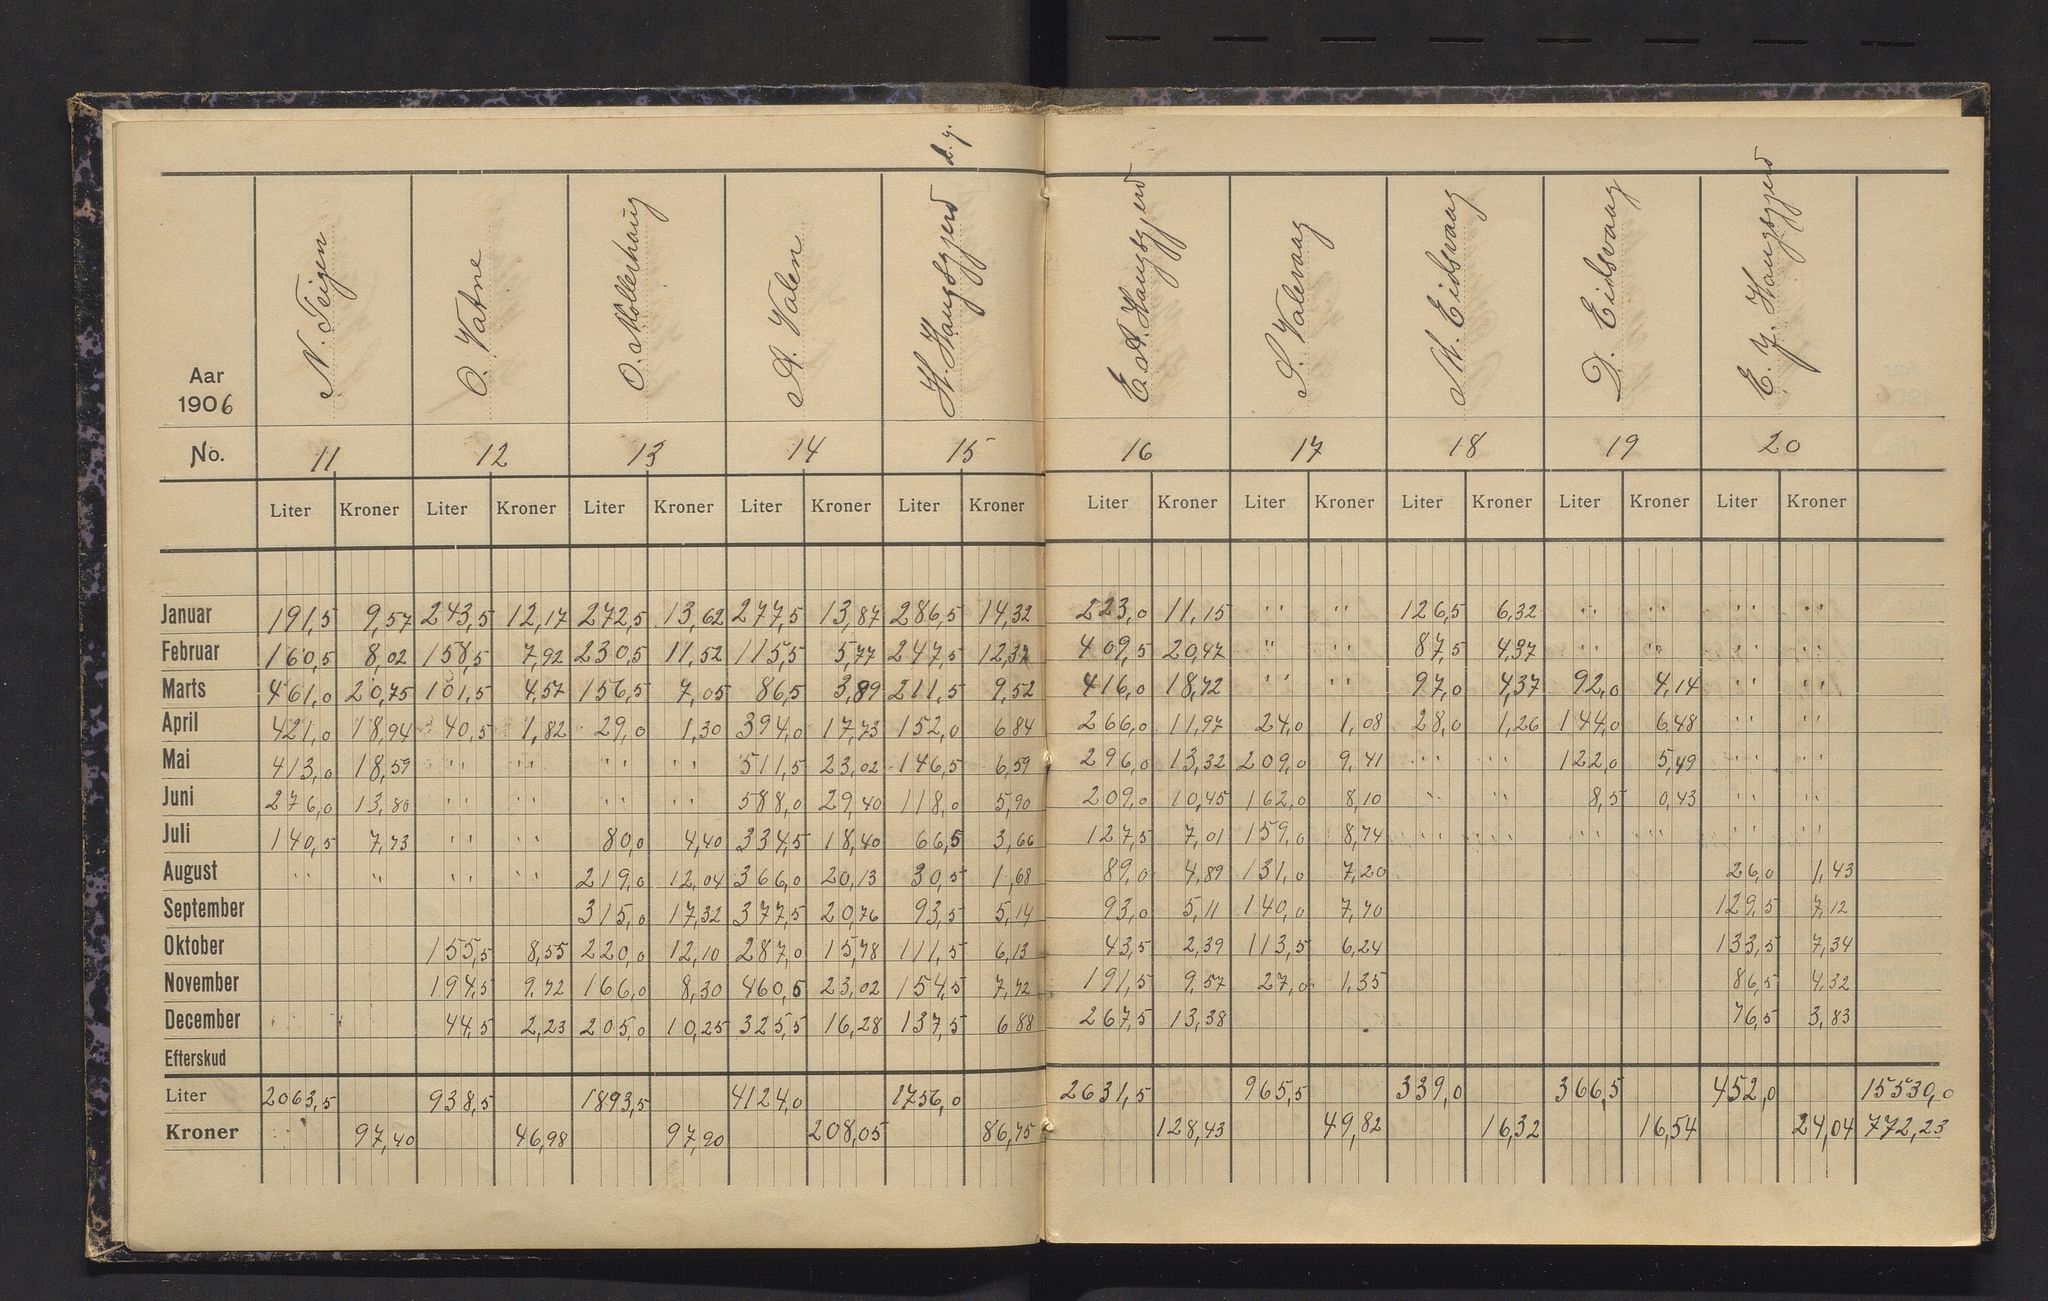 d. y.
Aar 1906 N. Teigen O. Vatne O. Mollerhaug A. Valen H. Haugsgjerd E. A. Haugsgjerd S. Valevaag M. Eidsvaag D. Eidsvaag E. J. Haugsgjerd
No. 11 12 13 14 15 16 17 18 19 20
Liter Kroner Liter Kroner Liter Kroner Liter Kroner Liter Kroner Liter Kroner Liter Kroner Liter Kroner Liter Kroner Liter Kroner
Januar 191,5 9,57 243,5 12,17 272,5 13,62 277,5 13,87 286,5 14,32 223,0 11,15 " " 126,5 6,32 " " " "
Februar 160,5 8,02 158,5 7,92 230,5 11,52 115,5 5,77 247,5 12,37 409,5 20,47 " " 87,5 4,37 " " " "
Marts 461,0 20,75 101,5 4,57 156,5 7,05 86,5 3,89 211,5 9,52 416,0 18,72 " " 97,0 4,37 92,0 4,14 " "
April 421,0 18,94 40,5 1,82 29,0 1,30 394,0 17,73 152,0 6 84 266,0 11,97 24,0 1,08 28,0 1,26 144,0 6,48 " "
Mai 413,0 18,59 " " " " 511,5 23,02 146,5 6,59 296,0 13,32 209,0 9,41 " " 122,0 5,49 " "
Juni 276,0 13,80 " " " " 588,0 29,40 118,0 5,90 209,0 10,45 162,0 8,10 " " 8,5 0,43 " "
Juli 140,5 7,73 " " 80,0 4,40 334,5 18,40 66,5 3,66 127,5 7,01 159,0 8,74 " " " " " "
August " " " " 219,0 12,04 366,0 20,13 30,5 1,68 89,0 4,89 131,0 7,20 26,0 1,43
September 315,0 17,32 377,5 20,76 93,5 5,14 93,0 5,11 140,0 7,70 129,5 7,12
Oktober 155,5 8,55 220,0 12,10 287,0 15,78 111,5 6,13 43,5 2,39 113,5 6,24 133,5 7,34
November 194,5 9,72 166,0 8,30 460,5 23,02 154,5 7,72 191,5 9,57 27,0 1,35 86,5 4,32
December 44,5 2,23 205,0 10,25 325,5 16,28 137,5 6 88 267,5 13,38 76,5 3,83
Efterskud
Liter 2063,5 938,5 1893,5 4124,0 1756,0 2631,5 965,5 339,0 366,5 452,0 15530,0
Kroner 97,40 46,98 97,90 208,05 86,75 128,43 49,82 16,32 16,54 24,04 772,23